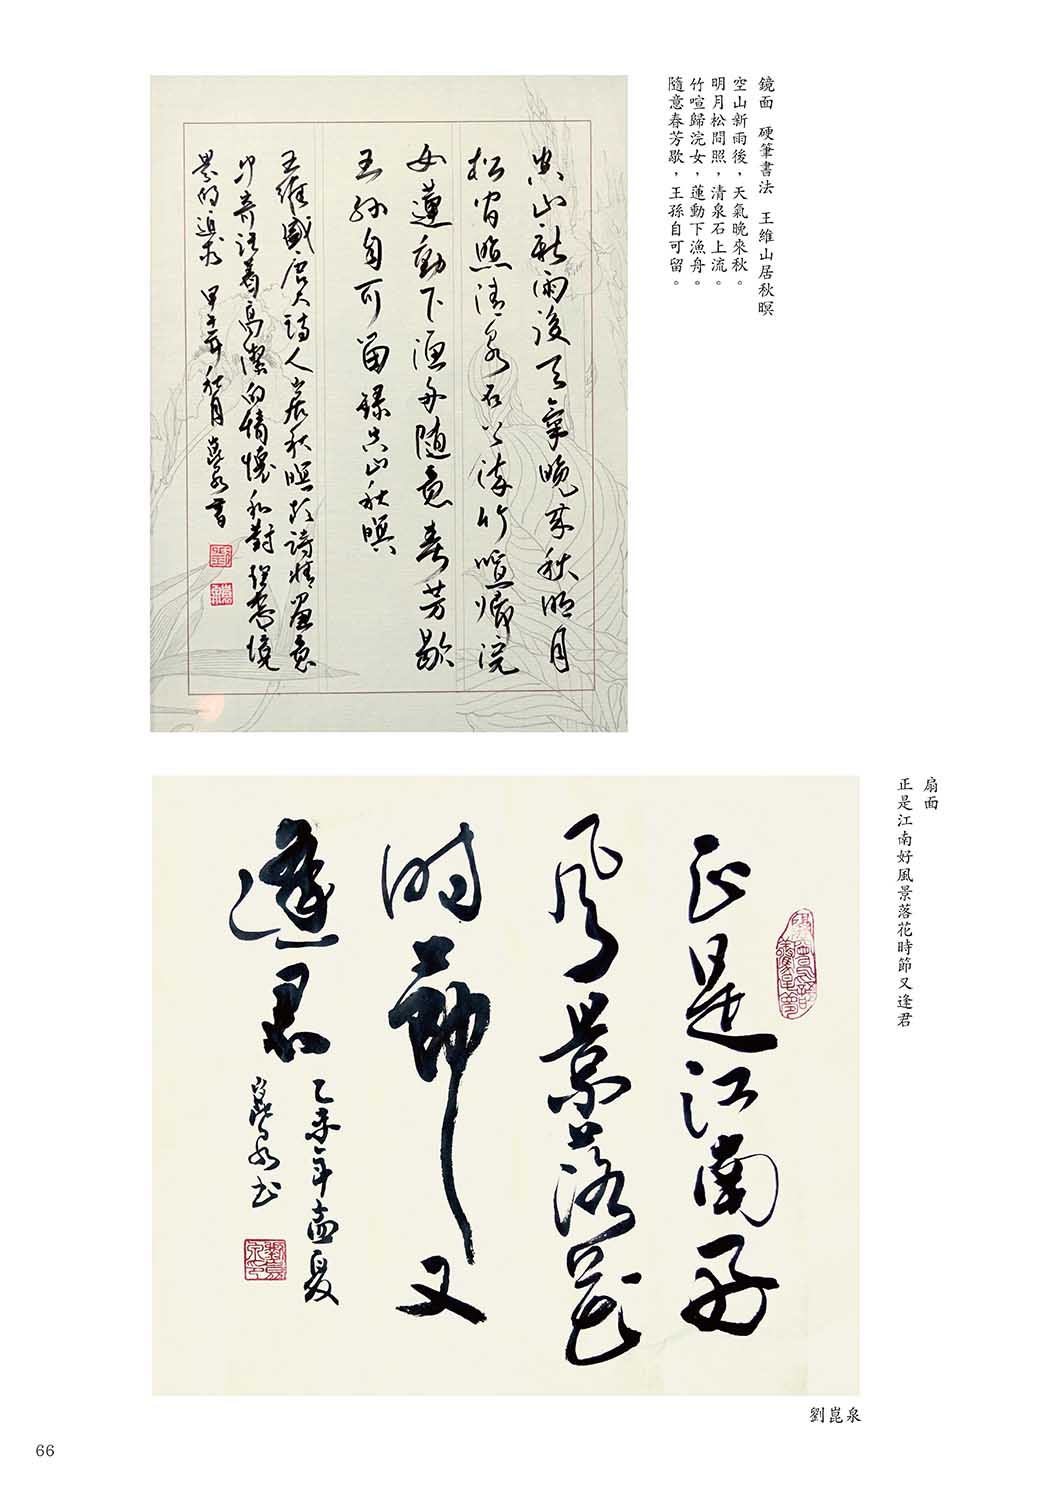 鏡面　硬筆書法　王維山居秋暝
空山新雨後，天氣晚來秋。
明月松間照，清泉石上流。
竹喧歸浣女，蓮動下漁舟。
隨意春芳歇，王孫自可留。
空山新雨後天氣晚來秋明月
松间照清泉石上流竹喧归浣
女蓮動下渔舟随意春芳歇
王孙自可留錄空山秋暝
王維盛唐大詩人山居秋暝於詩情畫意
中寄託着高潔的情懷和對理想境
界的追求 甲午年秋月 崑泉書
扇面
正是江南好風景落花時節又逢君
正是江南好
风景落花
时節又
逢君
乙未年孟夏
崑泉书
劉崑泉
66